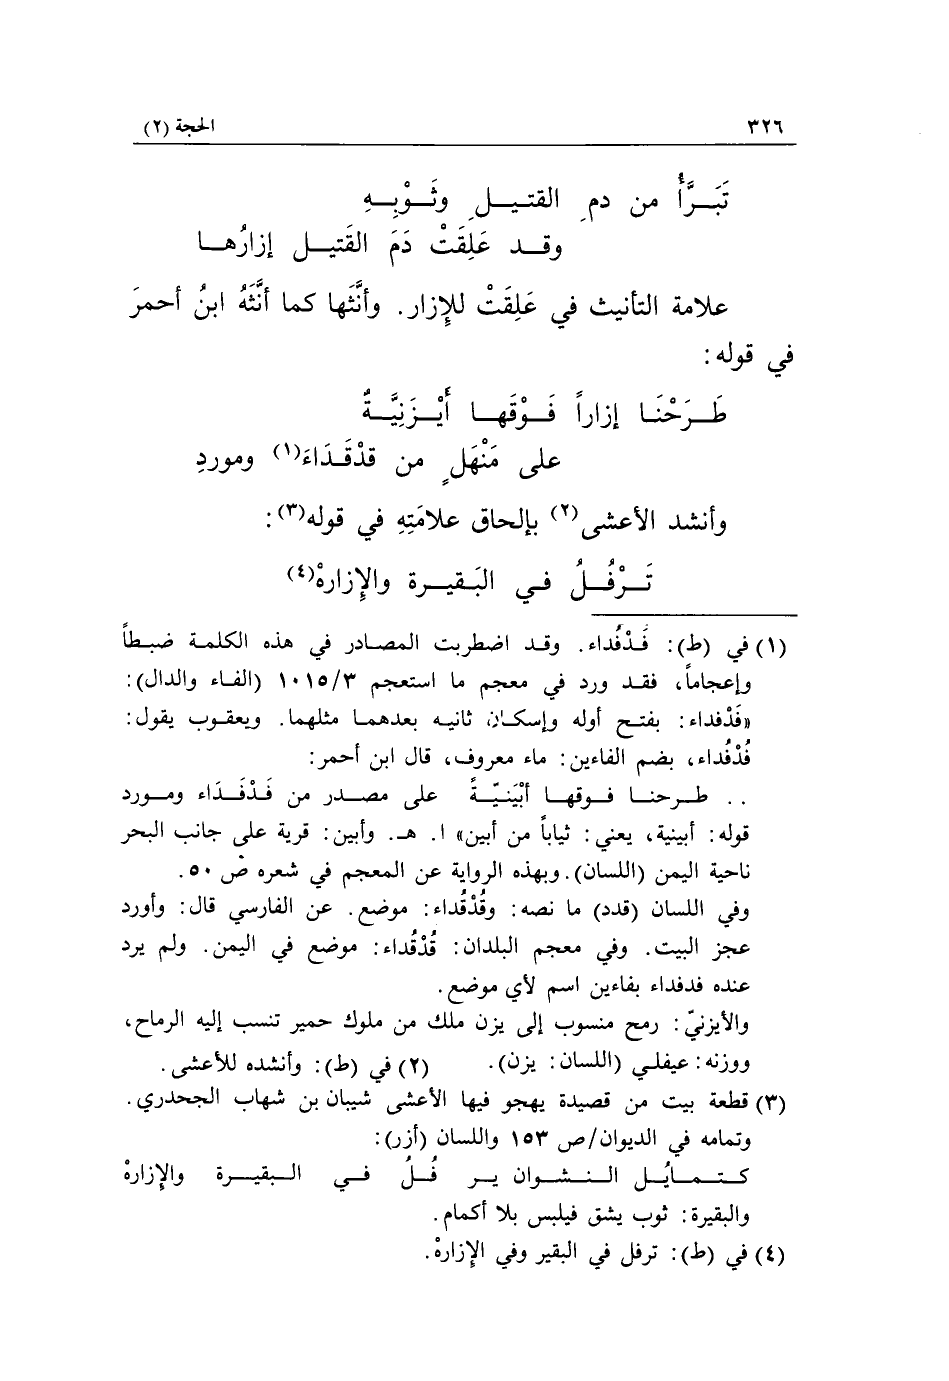 ٣٢٦ الحجة (٢)
تَبَرَّأُ من دمِ القتيلِ وثَوْبِهِ
وقد عَلِقَتْ دَمَ القَتيل إزارُها
علامة التأنيث في عَلِقَتْ للإِزار. وأنَّثَها كما أنَّثَهُ ابنُ أحمرَ
في قوله:
طَرَحْنَا إزاراً فَوْقَها أَيْزَنِيَّةً
على مَنْهَلٍ من قدْقَدَاءَ(١) ومورِدِ
وأنشد الأعشى(٢) بإلحاق علامَتِهِ في قوله(٣):
تَرْفُلُ في البَقيرة والإِزارهْ(٤)
(١) في (ط): فَدْفُداء. وقد اضطربت المصادر في هذه الكلمة ضبطاً
وإعجاماً، فقد ورد في معجم ما استعجم ١٠١٥/٣ (الفاء والدال):
«فَدْفداء: بفتح أوله وإسكان ثانيه بعدهما مثلهما. ويعقوب يقول:
فُدْفُداء، بضم الفاءين: ماء معروف، قال ابن أحمر:
.. طرحنا فوقها أَبْيَنِيَّةً على مصدر من فَدْفَدَاء ومورد
قوله: أبينية، يعني: ثياباً من أبين» ا. هـ. وأبين: قرية على جانب البحر
ناحية اليمن (اللسان). وبهذه الرواية عن المعجم في شعره ص ٥٠.
وفي اللسان (قدد) ما نصه: وقُدْقُداء: موضع. عن الفارسي قال: وأورد
عجز البيت. وفي معجم البلدان: قُدْقُداء: موضع في اليمن. ولم يرد
عنده فدفداء بفاءين اسم لأي موضع.
والأيزنيّ: رمح منسوب إلى يزن ملك من ملوك حمير تنسب إليه الرماح،
ووزنه: عيفلي (اللسان: يزن). (٢) في (ط): وأنشده للأعشى.
(٣) قطعة بيت من قصيدة يهجو فيها الأعشى شيبان بن شهاب الجحدري.
وتمامه في الديوان/ص ١٥٣ واللسان (أزر):
كتمايُل النشوان ير فُلُ في البقيرة والإزارهْ
والبقيرة: ثوب يشق فيلبس بلا أكمام.
(٤) في (ط): ترفل في البقير وفي الإزارهْ.